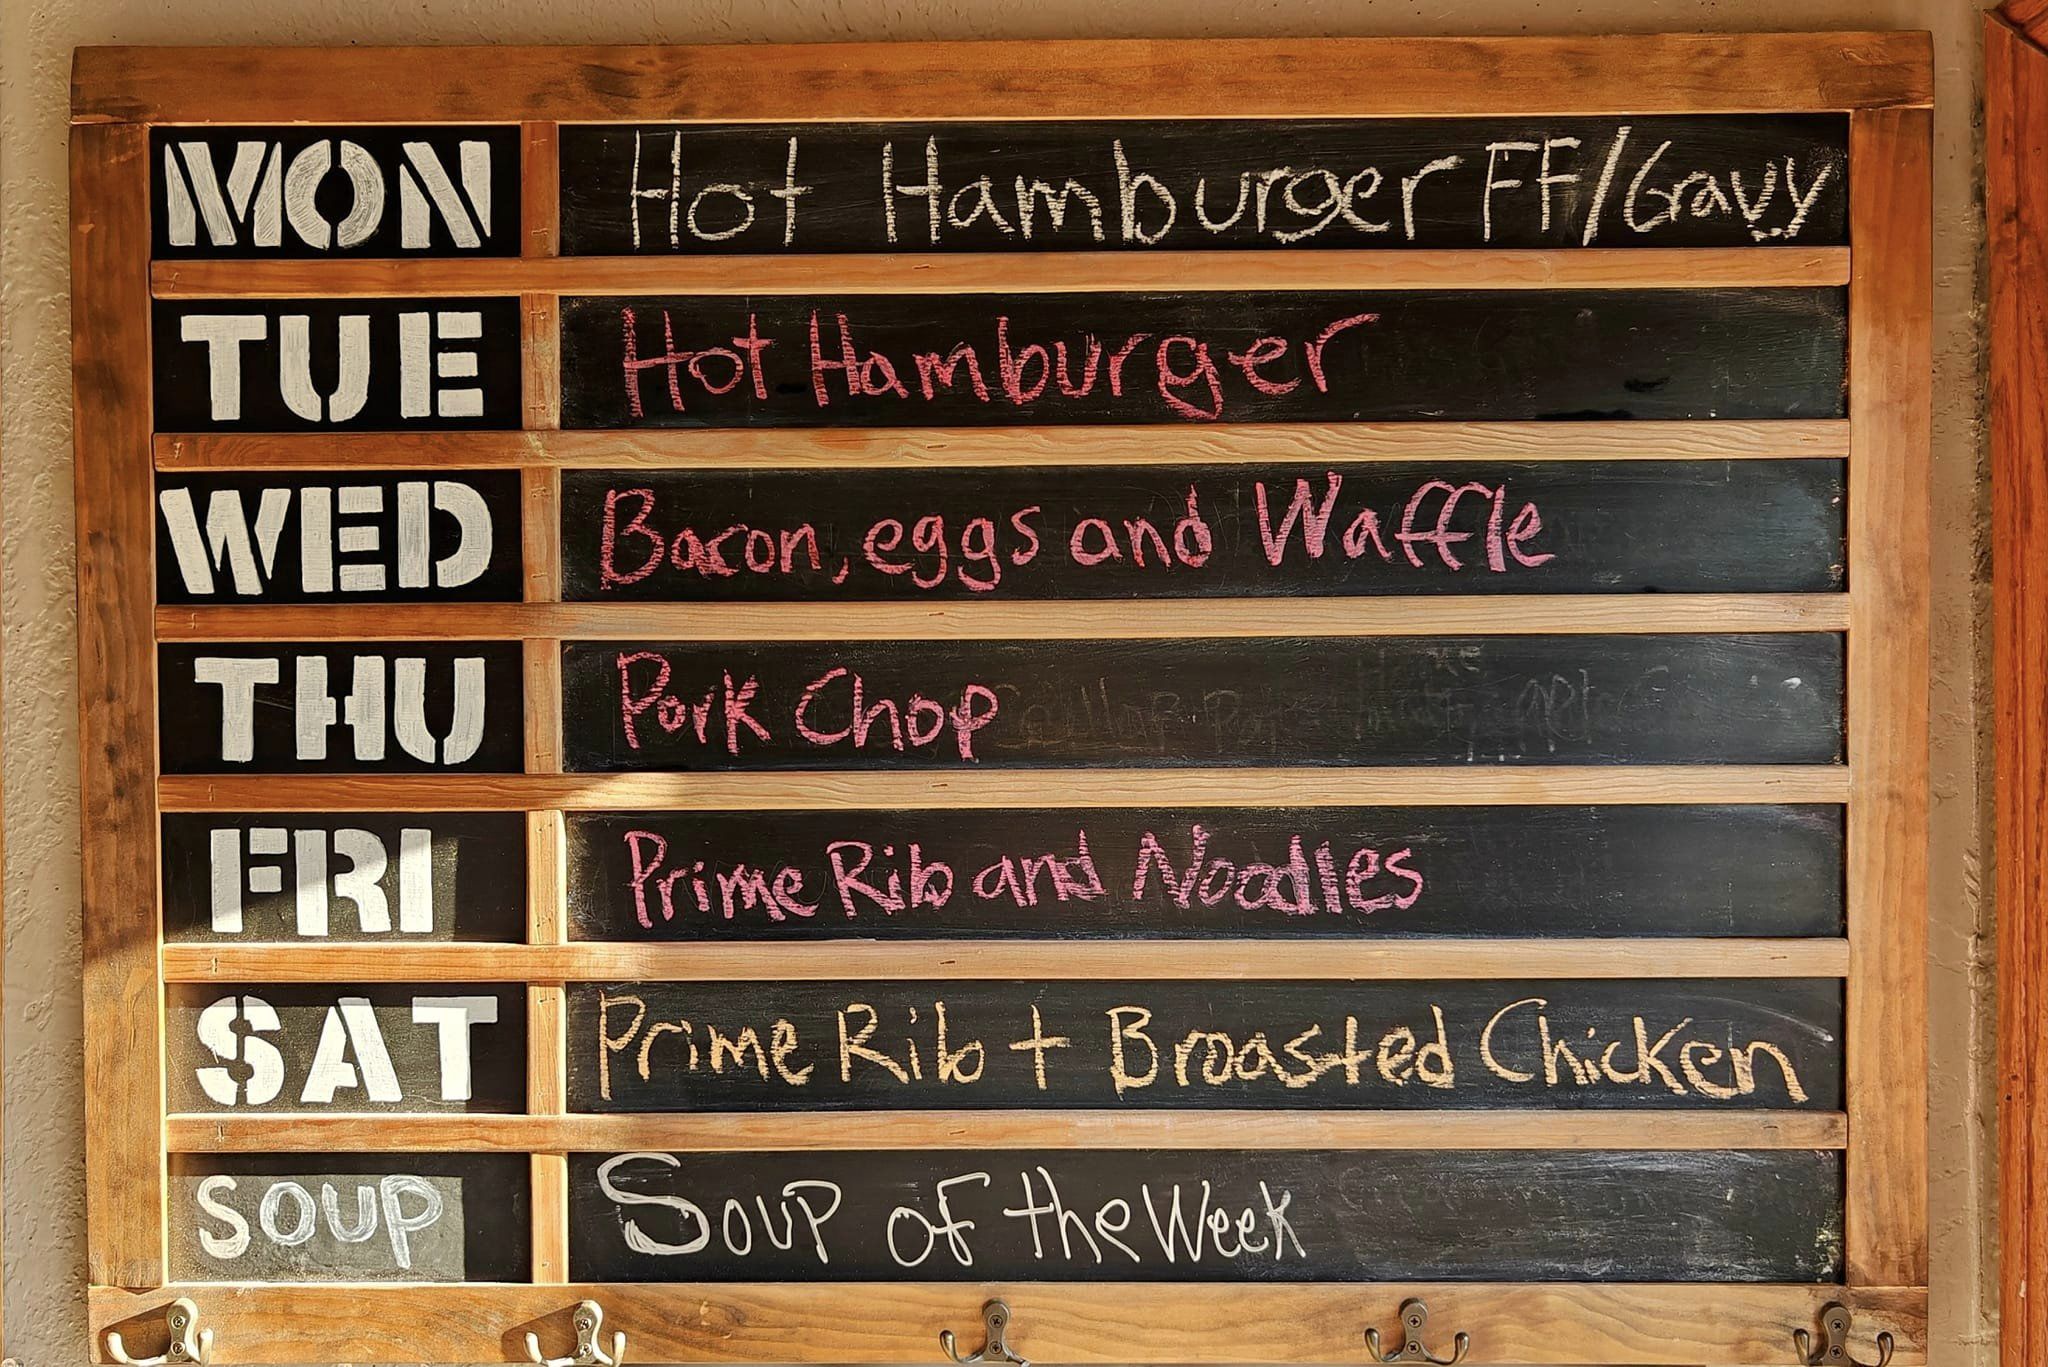 MON Hot Hamburger FF/Gravy
TUE Hot Hamburger
WED Bacon, eggs and Waffle
THU Pork Chop
FRI Prime Rib and Noodles
SAT Prime Rib + Broasted Chicken
SOUP Soup of the Week